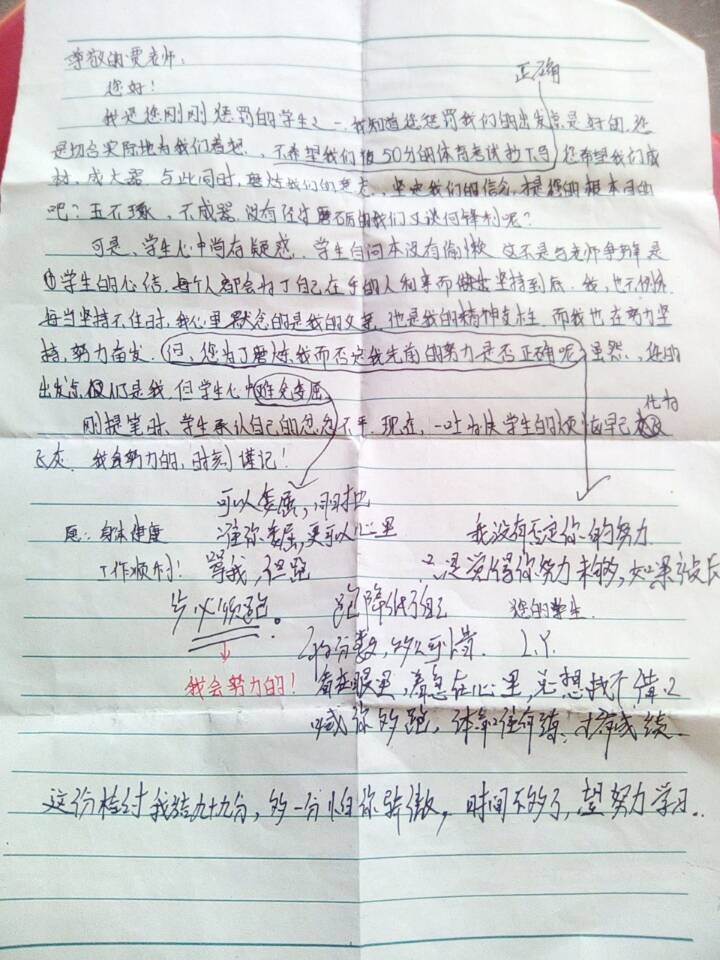 尊敬的费老师:
正确
您好!
我是您刚刚惩罚的学生之一,我知道您惩罚我们的出发点是好的,您
是切合实际地为我们着想,不希望我们被50分的体育考试拉下马,您希望我们成
材,成大器,与此同时,磨炼我们的意志,坚定我们的信念,才是您的根本目的
吧?玉不琢,不成器,没有经过磨石的我们又谈何锋利呢?
可是,学生心中尚存疑惑,学生自问本没有偷懒,这不是与老师争辩,是
学生的心结,每个人都会为了自己在乎的人和事而做出坚持到底,我,也不例外,
每当坚持不住时,我心里默念的是我的父亲,他是我的精神支柱,而我也在努力坚
持,努力奋发,但,您为了磨炼我而否定我先前的努力是否正确呢,虽然,您的
出发点仅仅是我,但学生心中难免委屈
刚提笔时,学生承认自己的忿忿不平,现在,一吐为快,学生的烦恼早已化为
飞灰,我会努力的,时刻谨记!
可以委屈,同时也
愿:身体健康 准你委屈,更可以心里 我没有否定你的努力
工作顺利! 骂我,但跑 只是觉得你努力未够,如果被长
步必须跑。 跑降低了自己 您的学生
的分数, L.Y.
我会努力的! 看在眼里,着急在心里,总想找个借口
喊你多跑,体育往年练,才有成绩.
这份检讨我给九十九分,多一分怕你骄傲,时间不够了,望努力学习..